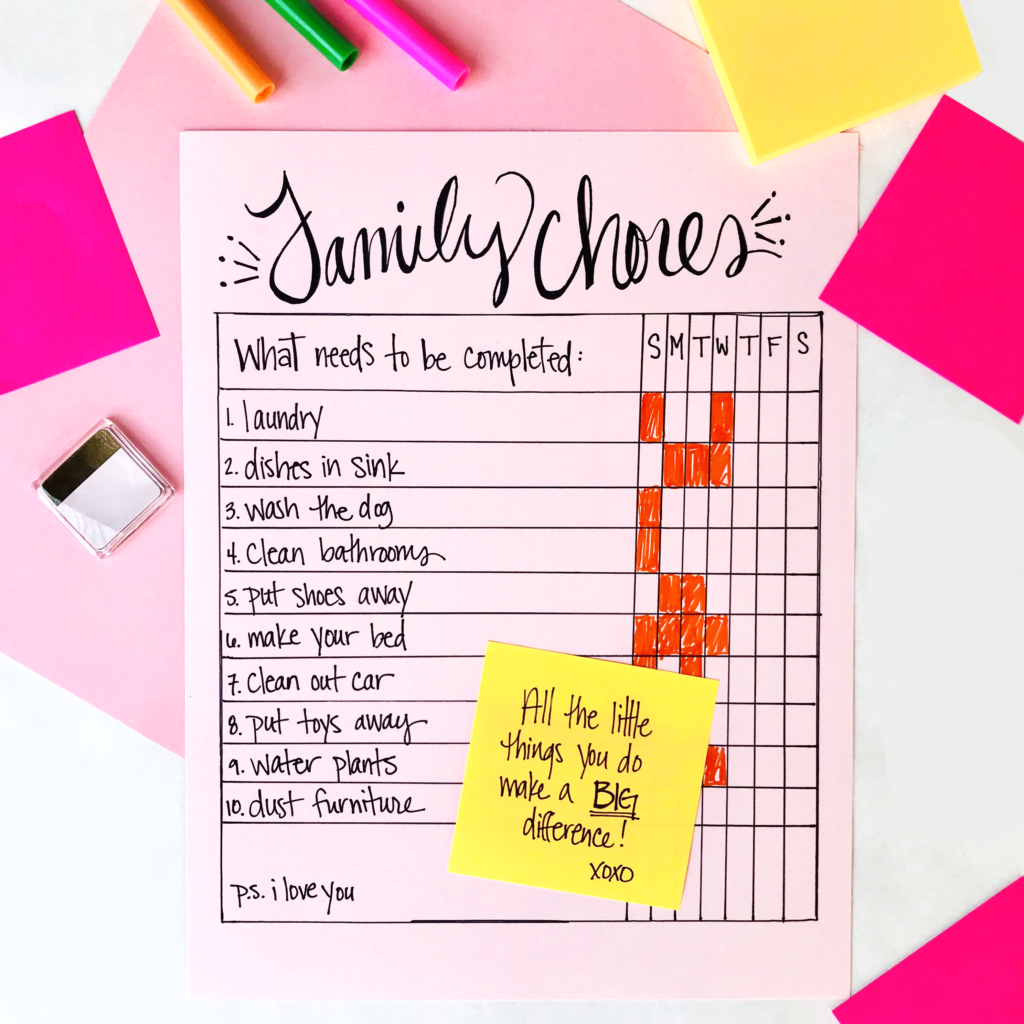 Family Chores
What needs to be completed: S M T W T F S
1. laundry
2. dishes in sink
3. wash the dog
4. Clean bathrooms
5. put shoes away
6. make your bed
7. Clean out car
8. put toys away
9. water plants
10. dust furniture
p.s. i love you
All the little
things you do
make a BIG
difference!
xoxo